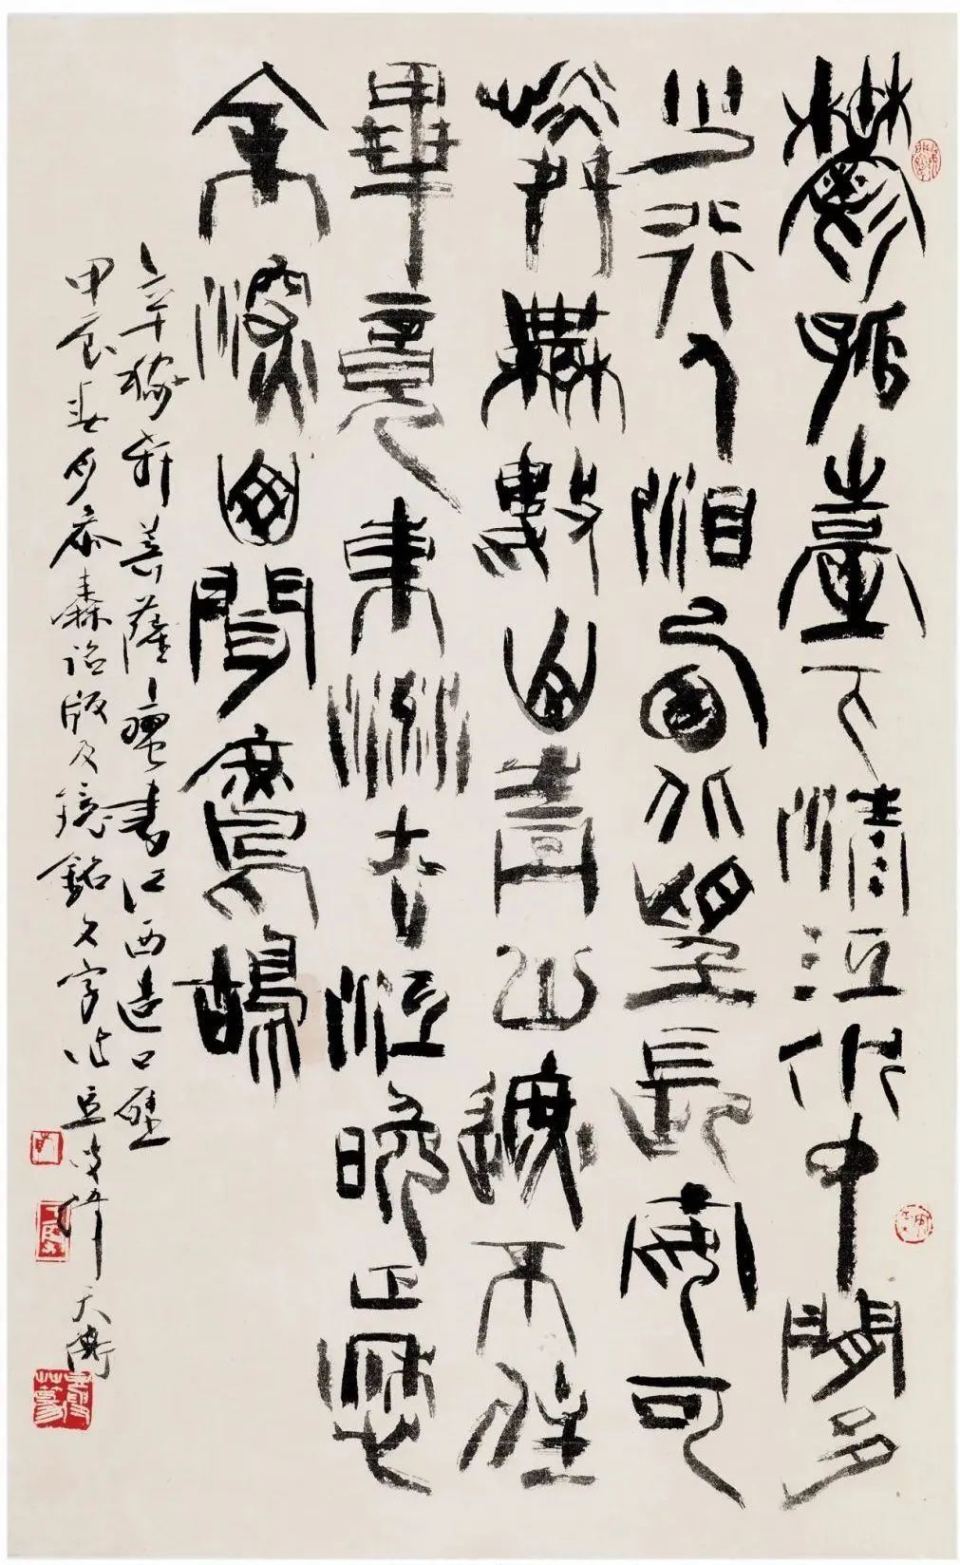 鬱孤臺下清江水中間多
少行人淚西北望長安可
憐無數山青山遮不住
畢竟東流去江晚正愁
余深山聞鷓鴣
辛稼軒菩薩蠻書江西造口壁
甲辰秦詔版及鏡銘文字作豆韓天衡